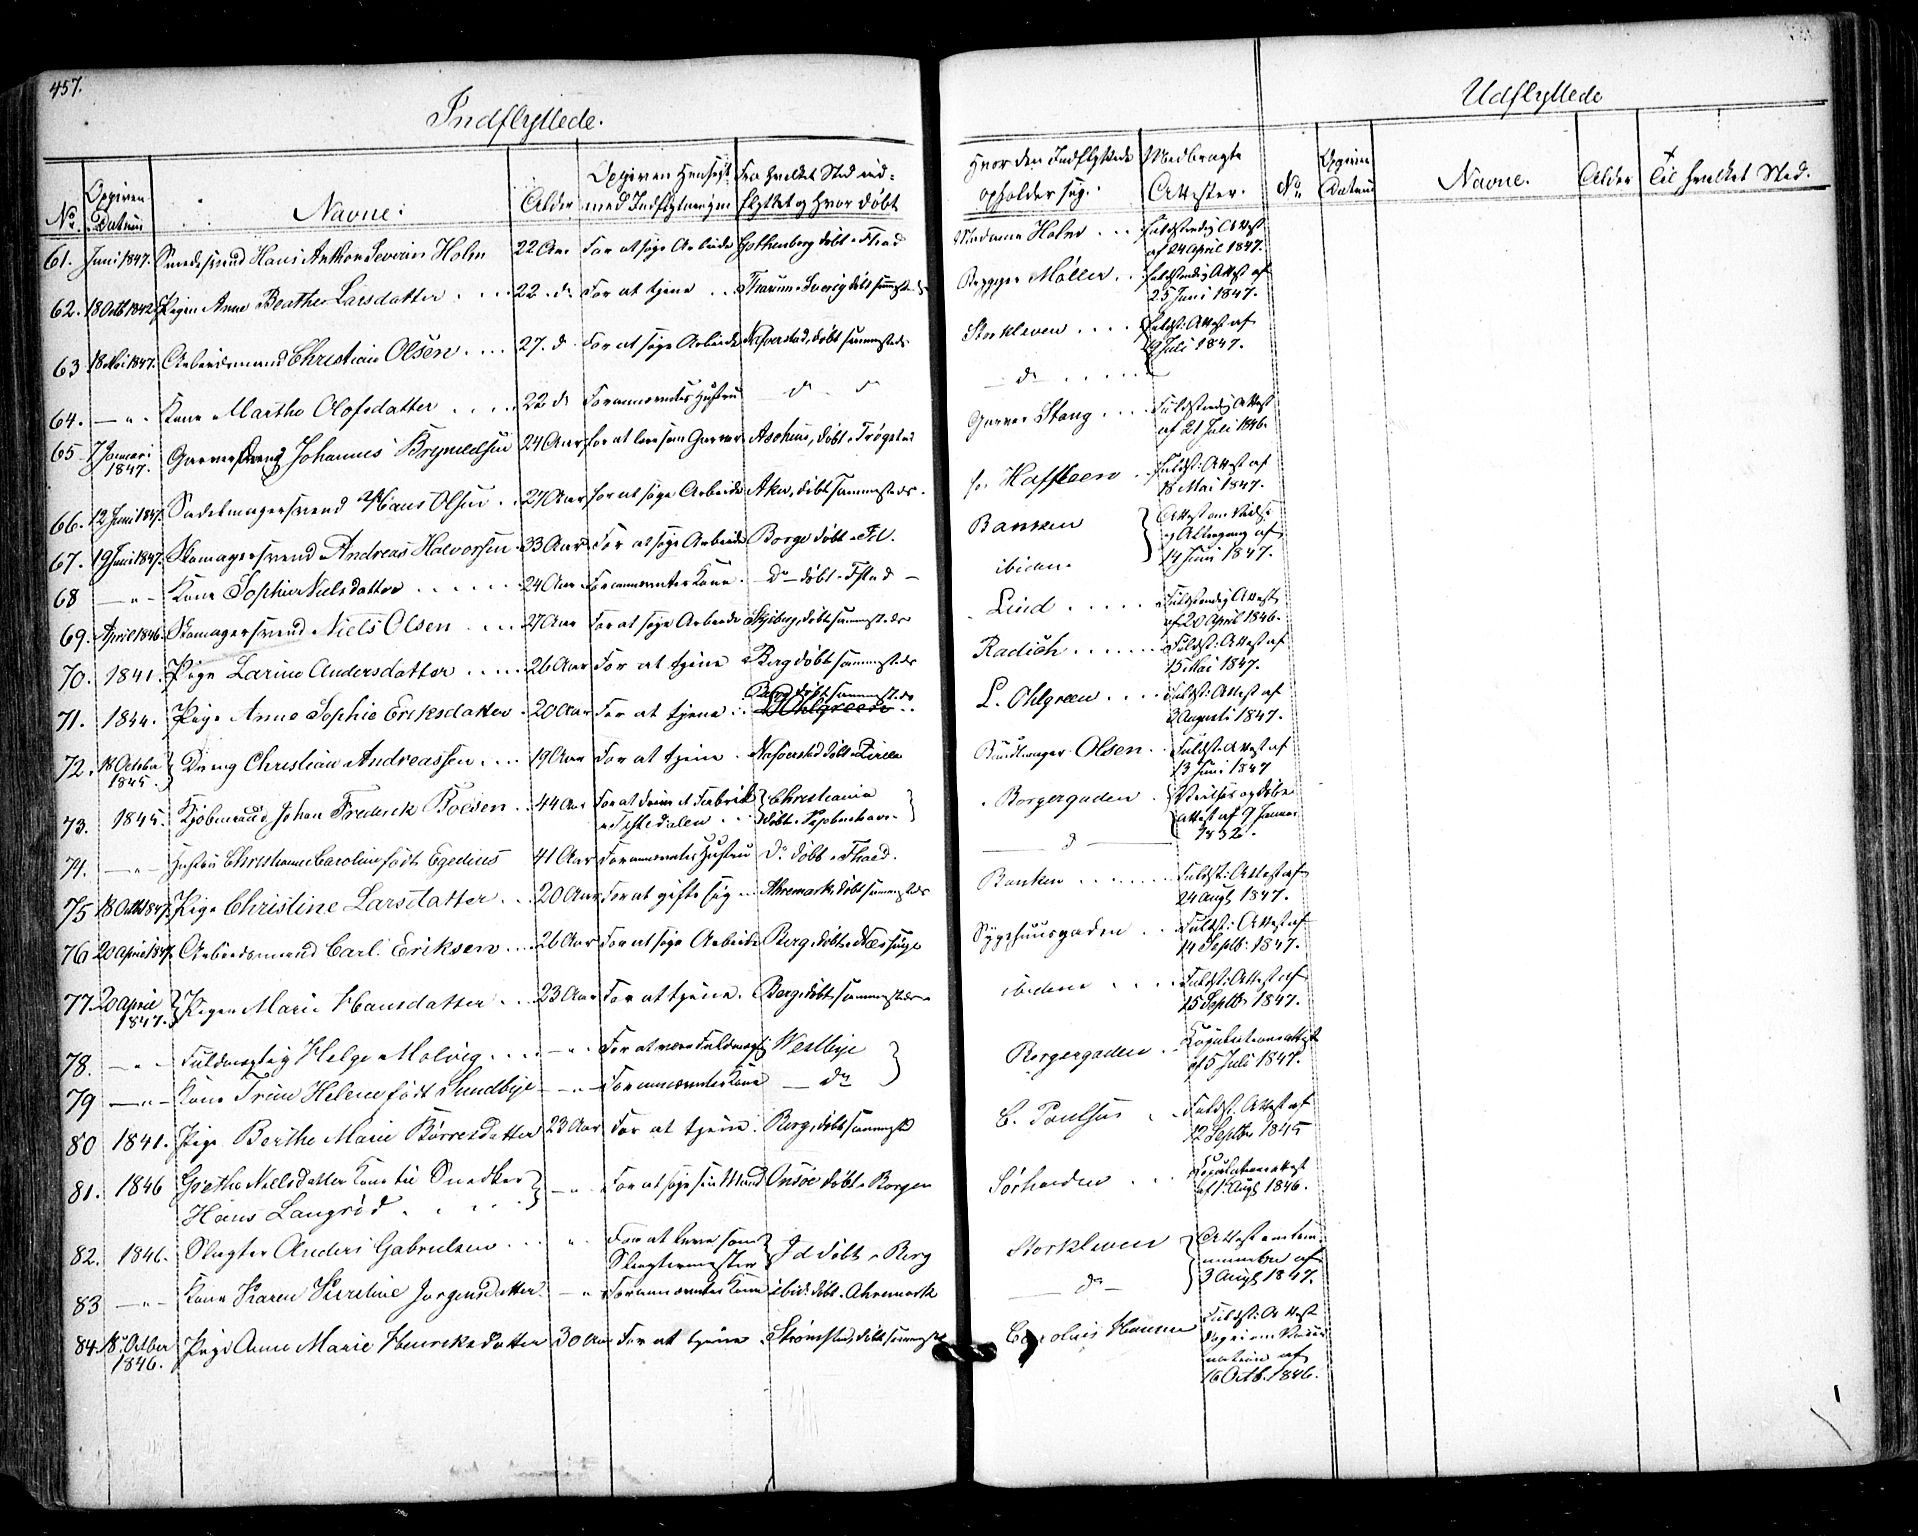 457.
Indflyttede.
No.
Opgiven Datum
Navne.
Alder
Opgiven Hensigt med Indflytningen
Fra hvilket Sted ind- flyttet og hvor døbt
Hvor den Indflyttede opholder sig.
Medbragte Attester.
Udflyttede
No.
Opgiven Datum
Navne.
Alder
Til hvilket Sted.
61. Juni 1847. Smedesvend Hans Anthon Severin Holm 22 Aar For at søge Arbeide døbt Fstad Madame Holm Fuldstændig Attest af 24 April 1847.
62. 18 Octb 1842 Pigen Anne Berthe Larsdatter 22 do For at tjene døbt sammesteds Møller Fuldstændig Attest af 25 Juni 1847.
63 18 Mai 1847. Arbeidsmand Christian Olsen 27. do For at søge Arbeide døbt sammesteds Storkleven Fuldst: Attest af 19 Juli 1847.
64. — " - Kone Marthe Olofsdatter 22 do Forannævntes Hustru do do — do
65 7 Januari 1847. Garversvend Johannes Brynildsen 24 Aar for at lære som Garver Aschim, døbt Trøgstad Garver Stang Fuldstændig Attest af 21 Juli 1846.
66. 12 Juni 1847. Sadelmagersvend Hans Olsen 27 Aar for at søge Arbeide Aker, døbt sammesteds. Fuldst: Attest af 18 Mai 1847.
67. 19 Juni 1847. Skomagersvend Andreas Halvorsen 33 Aar For at søge Arbeide Borge døbt Banken Attest om Vielse og Altergang af 14 Juni 1847.
68 — " - Kone Sophie Nielsdatter 24 Aar Forannævntes Kone. Do døbt Fstad ibidem
69. April 1846. Skomagersvend Niels Olsen 27 Aar For at søge Arbeide døbt sammesteds Lind Fuldstændig Attest af 20 April 1846.
70. 1841. Pige Larine Andersdatter 26 Aar For at tjene Berg døbt sammesteds Radich Fuldst: Attest af 15 Mai 1847.
71. 1844. Pige Anne Sophie Eriksdatter 20 Aar For at tjene Berg døbt sammesteds L. Ohlgreen Fuldst: Attest af 3 Augusti 1847.
72. 18 October 1845. Dreng Christian Andreassen 19 Aar For at tjene døbt Olsen Fuldst: Attest af 13 Juni 1847
73. 1845. Kjøbmand Johan Frederik Boesen 44 Aar For at drive et Fabrik Tistedalen Christiania døbt Borgergaden Vielses og Døbe attest af 9 Januar 1832.
74. — " - Hustru Christiane Caroline født Egedius 41 Aar Forannævntes Hustru Do døbt do
75 18 Octb 1847. Pige Christine Larsdatter 20 Aar For at gifte sig Ahremark døbt sammesteds Banken Fuldst: Attest af 24 Augt 1847.
76 20 April 1847. Arbeidsmand Carl Eriksen 26 Aar For at søge Arbeide Berg, døbt Sygehuusgaden Fuldst: Attest af 14 Septb: 1847.
77. 20 April 1847. Pigen Marie Hansdatter 23 Aar For at tjene. Berg, døbt sammesteds ibidem Fuldst: Attest af 15 Septbr 1847.
78. — " - Fuldmægtig Helge Molvig — " - For at være Fuldmægt Westbye Borgergaden Copulationsattest af 5 Juli 1847.
79 — " - Kone Trine Helene født Sundbye — " - Forannævntes Kone — do
80 1841. Pige Berthe Marie Børresdatter 23 Aar For at tjene. Berg, døbt sammests C. Paulsen Fuldst: Attest af 12 Septbr 1845
81. 1846 Grethe Nielsdatter Kone til Snedker Hans Langrød — " - For at søge sin Mand Onsøe døbt Borgen Sørhalden Copulationsattest af 1 Augt 1846.
82. 1846. Slagter Anders Gabrielsen " For at være som Slagtermester Id døbt Berg Storkleven Attest af 3 Augt 1847.
83 — " - Kone Karen Kirstine Jørgensdatter — " Forannævntes Kone ibid. døbt Ahremark — do —
84. 18 October 1846. Pige Anne Marie Henriksdatter 30 Aar For at tjene Strømstad, døbt sammest Hanne Fuldst: Attest af 16 Octb. 1846.